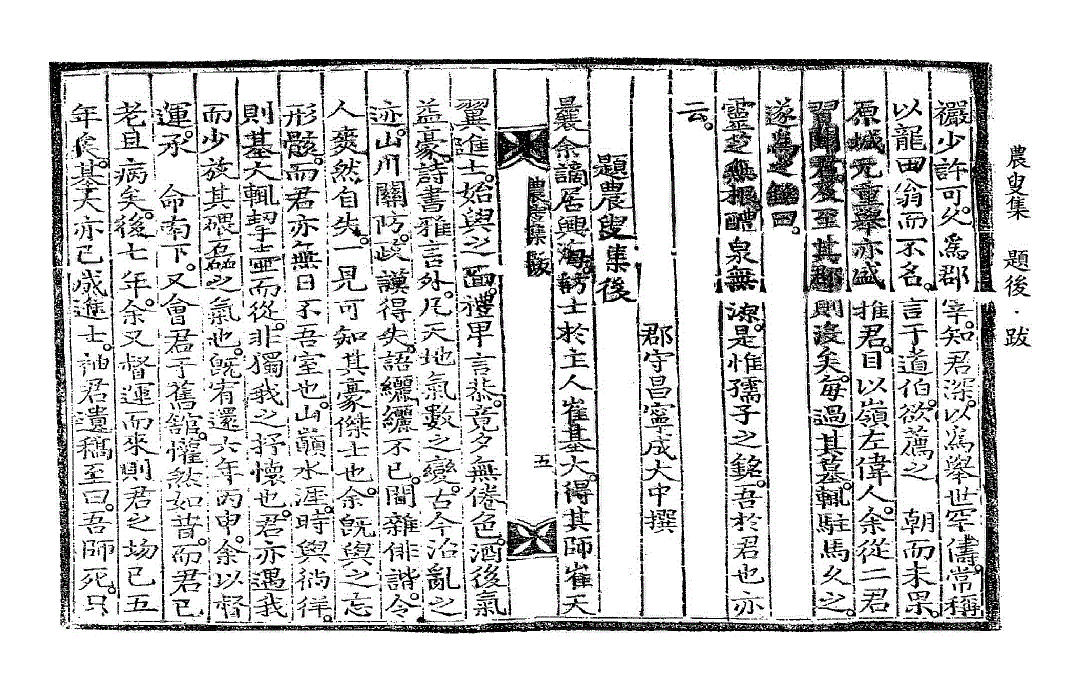 農叟集 題後·跋
襮少許可。久爲郡宰。知君深。以爲擧世罕儔。常稱
以龍田翁而不名。言于道伯。欲薦之 朝而未果。
原城元重擧亦盛推君。目以嶺左偉人。余從二君
習聞君。及至其郡則沒矣。每過其墓。輒駐馬久之。
遂爲之銘曰。
靈芝無根醴泉無源。是惟孺子之銘。吾於君也亦
云。
郡守昌寧成大中撰
題農叟集後
曩余謫居興海。訪士於主人崔基大。得其師崔天
農叟集 跋
五
翼進士。始與之面。禮卑言恭。竟夕無倦色。酒後氣
益豪。詩書雅言外。凡天地氣數之變。古今治亂之
迹。山川關防。政謨得失。語纚纚不已。間雜俳諧。令
人爽然自失。一見可知其豪傑士也。余旣與之忘
形骸。而君亦無日不吾室也。山巓水涯。時與徜徉。
則基大輒挈壺而從。非獨我之抒懷也。君亦遇我
而少放其磈磊之氣也。旣宥還六年丙申。余以督
運。承 命南下。又會君于舊館。懽然如昔。而君已
老且病矣。後七年。余又督運而來則君之圽已五
年矣。基大亦已成進士。袖君遺稿至曰。吾師死。只